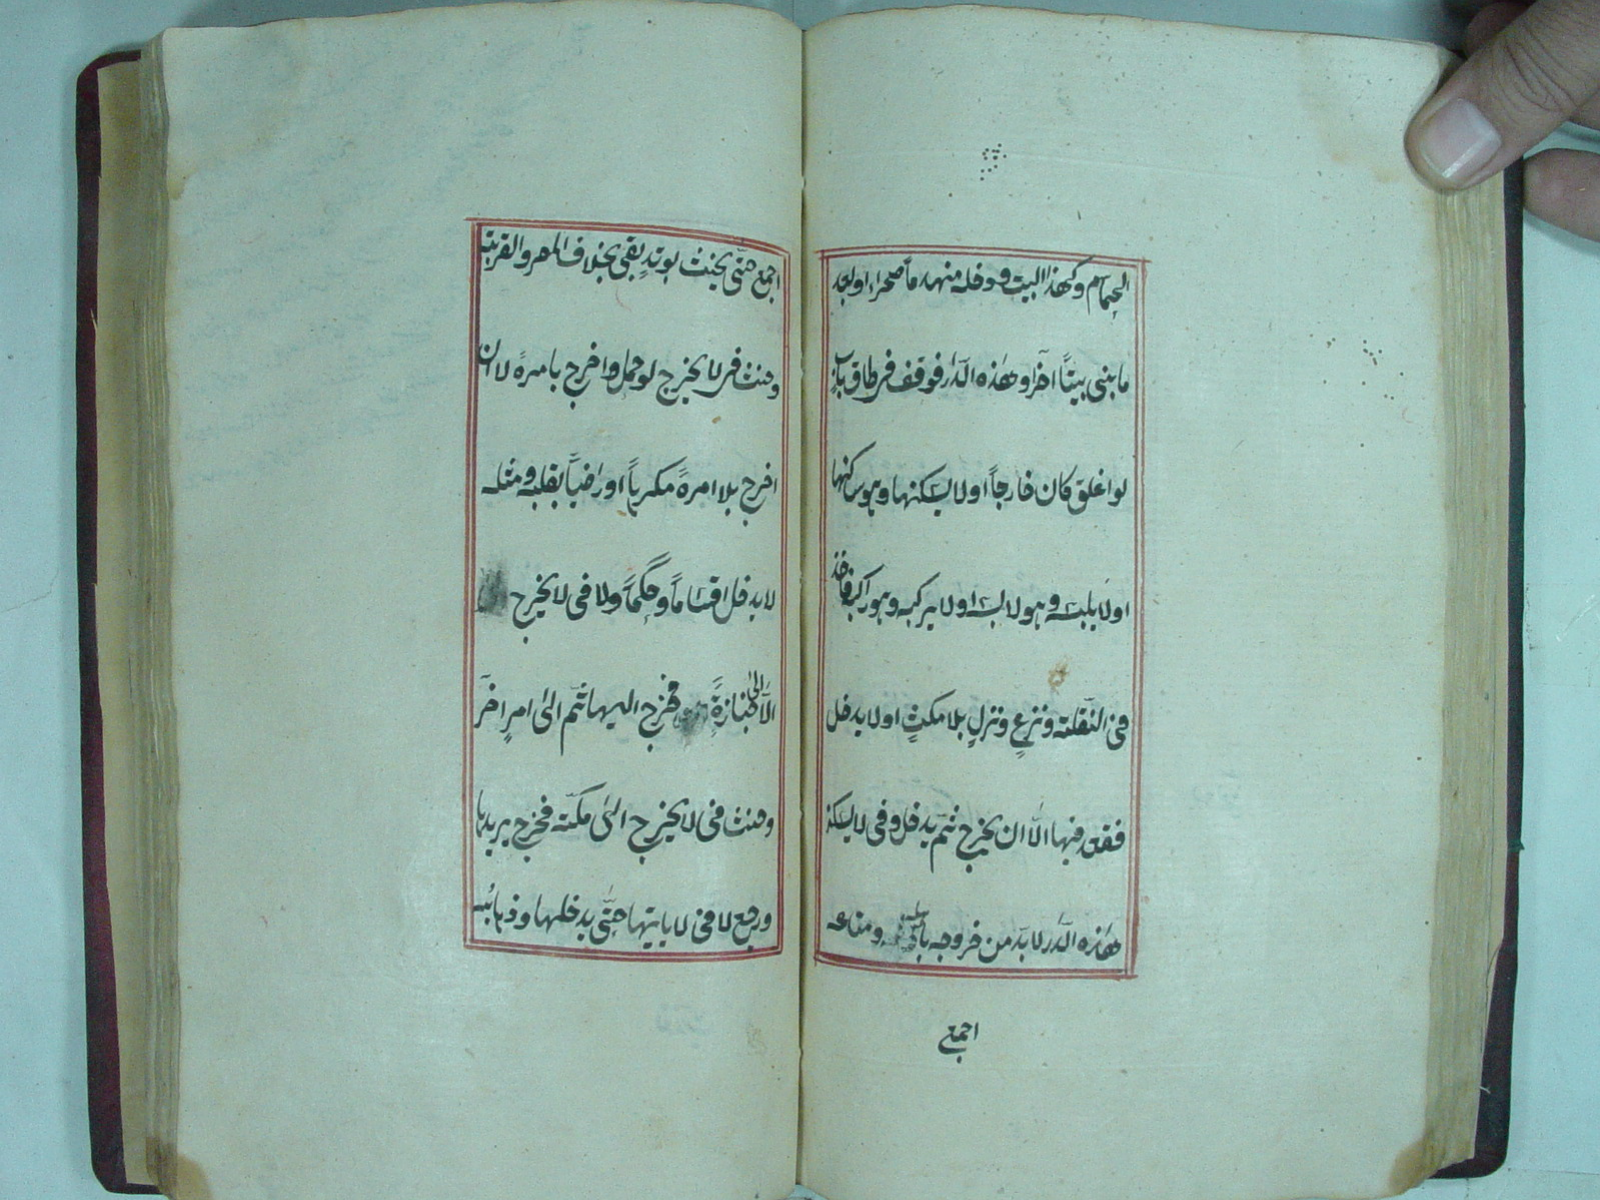 الحمام وكهذا البيت ودخله منهدماً صحراء او بعد
ما بنى بيتاً آخر او هٰذه الدار فوقف في طاق باب
لو اغلق كان خارجاً او لا يسكنها وهو ساكنها
او لا يلبسه وهو لابسه او لا يركبه وهو راكبه فاخذ
في النقلة ونزع ونزل بلا مكث او لا يدخل
فقعد فيها الّا ان يخرج ثمّ يدخل وفى لا يسكن
هٰذه الدار لا بدّ من خروجه باهله ومتاعه
اجمع
اجمع حتّى يحنث بوتد بقى بخلاف المصر والقرية
وحنث في لا يخرج لو حمل واخرج بامره لا ان
اخرج بلا امره مكرهاً او راضياً بقلبه ومثله
لا يدخل اقساماً وحكماً ولا فى لا يخرج
الّا الى جنازة فخرج اليها ثمّ الى امر آخر
وحنث فى لا يخرج الى مكّة فخرج يريدها
ورجع لا فى لا ياتيها حتّى يدخلها وذهابه